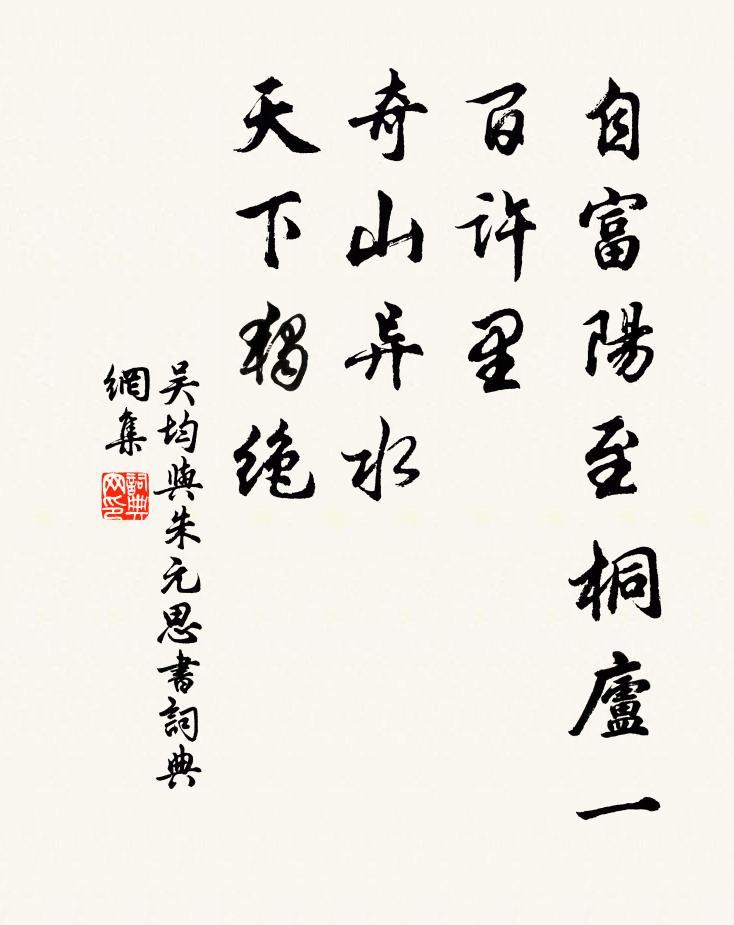 自富陽至桐廬一
百許里
奇山异水
天下獨绝
吴均與朱元思書詞典
網集
詞典网印